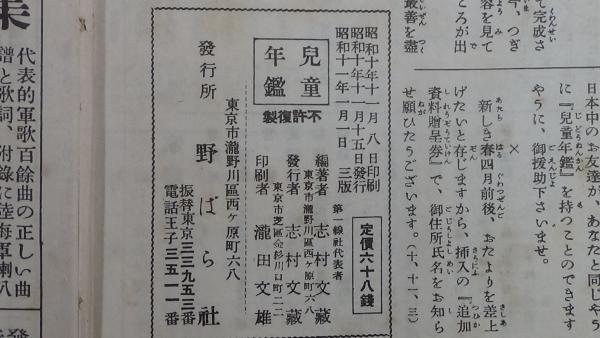 て完成さ
今、つぎ
容を見て
ころが出
最善を盡
日本中のお友達が、あなたと同じやう
に『兒童年鑑』を持つことのできます
やうに、御援助下さいませ。
×
新しき春四月前後、おたよりを差上
げたいと存じますから、挿入の『追加
資料贈呈券』で、御住所氏名をお知ら
せ願ひたうございます。(十、十一、三)
昭和十年十一月八日印刷
昭和十年十一月十五日發行
昭和十一年一月一日 三版
定價六十八錢
兒童
年鑑
不許復製
第一線社代表者
編著者 志村文藏
東京市瀧野川區西ヶ原町六八
發行者 志村文藏
東京市芝區金杉川口町二二
印刷者 瀧田文雄
東京市瀧野川區西ヶ原町六八
發行所 野ばら社
振替東京三三九五三番
電話王子三五一一番
集
代表的軍歌百餘曲の正しい曲
譜と歌詞、附錄に陸海軍喇叭